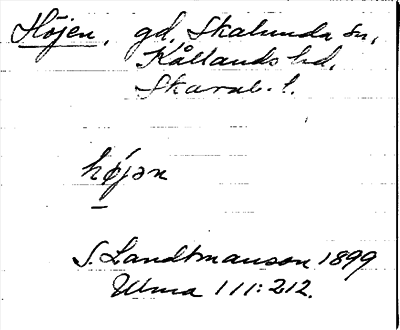 Höjen, gd, Skalunda sn,
Kållands hd,
Skarab. l.
höjən
S. Landtmanson 1899
Ulma 111:212.